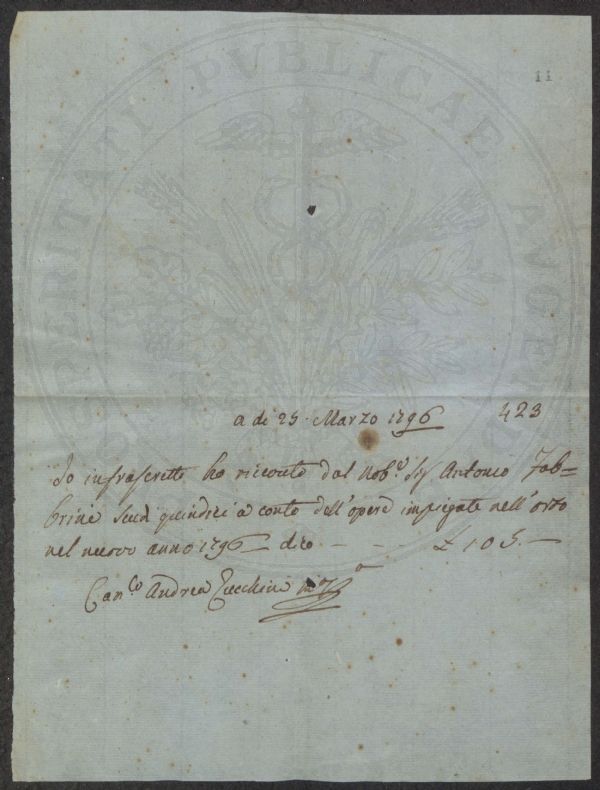 11
PROSPERITATI PUBLICAE AUGENDAE
a dì 25 Marzo 1796 423
Io infrascritto ho riceuto dal Nob.e Sig. Antonio Fab=
brini scudi quindici a conto dell'opere impiegate nell'orto
nel nuovo anno 1796 dico - - - £ 105.—
Can.co Andrea Zucchini